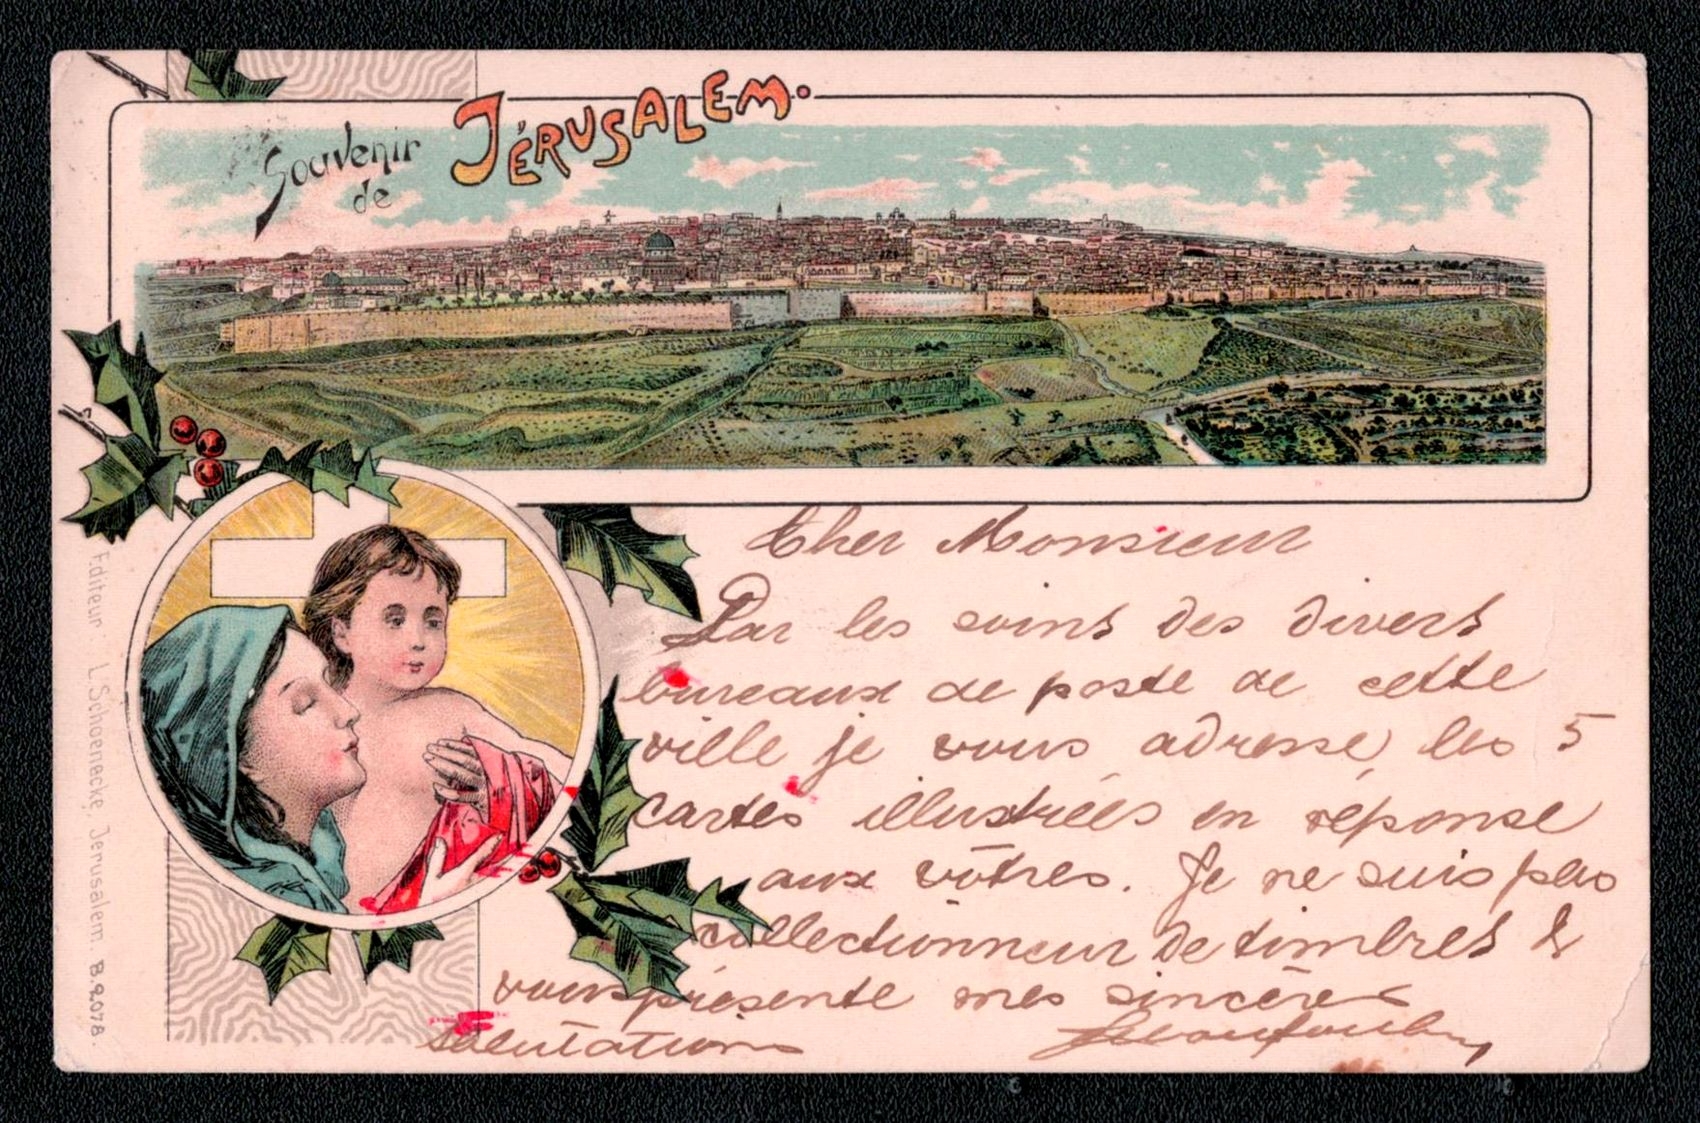 Souvenir
de
JÉRUSALEM.
Cher Monsieur
Par les soins des divers
bureaux de poste de cette
ville je vous adresse les 5
cartes illustrées en réponse
aux vôtres. Je ne suis plus
collectionneur de timbres &
vous présente mes sincères
salutations
Editeur: L. Schoenecke, Jerusalem. B.9078.